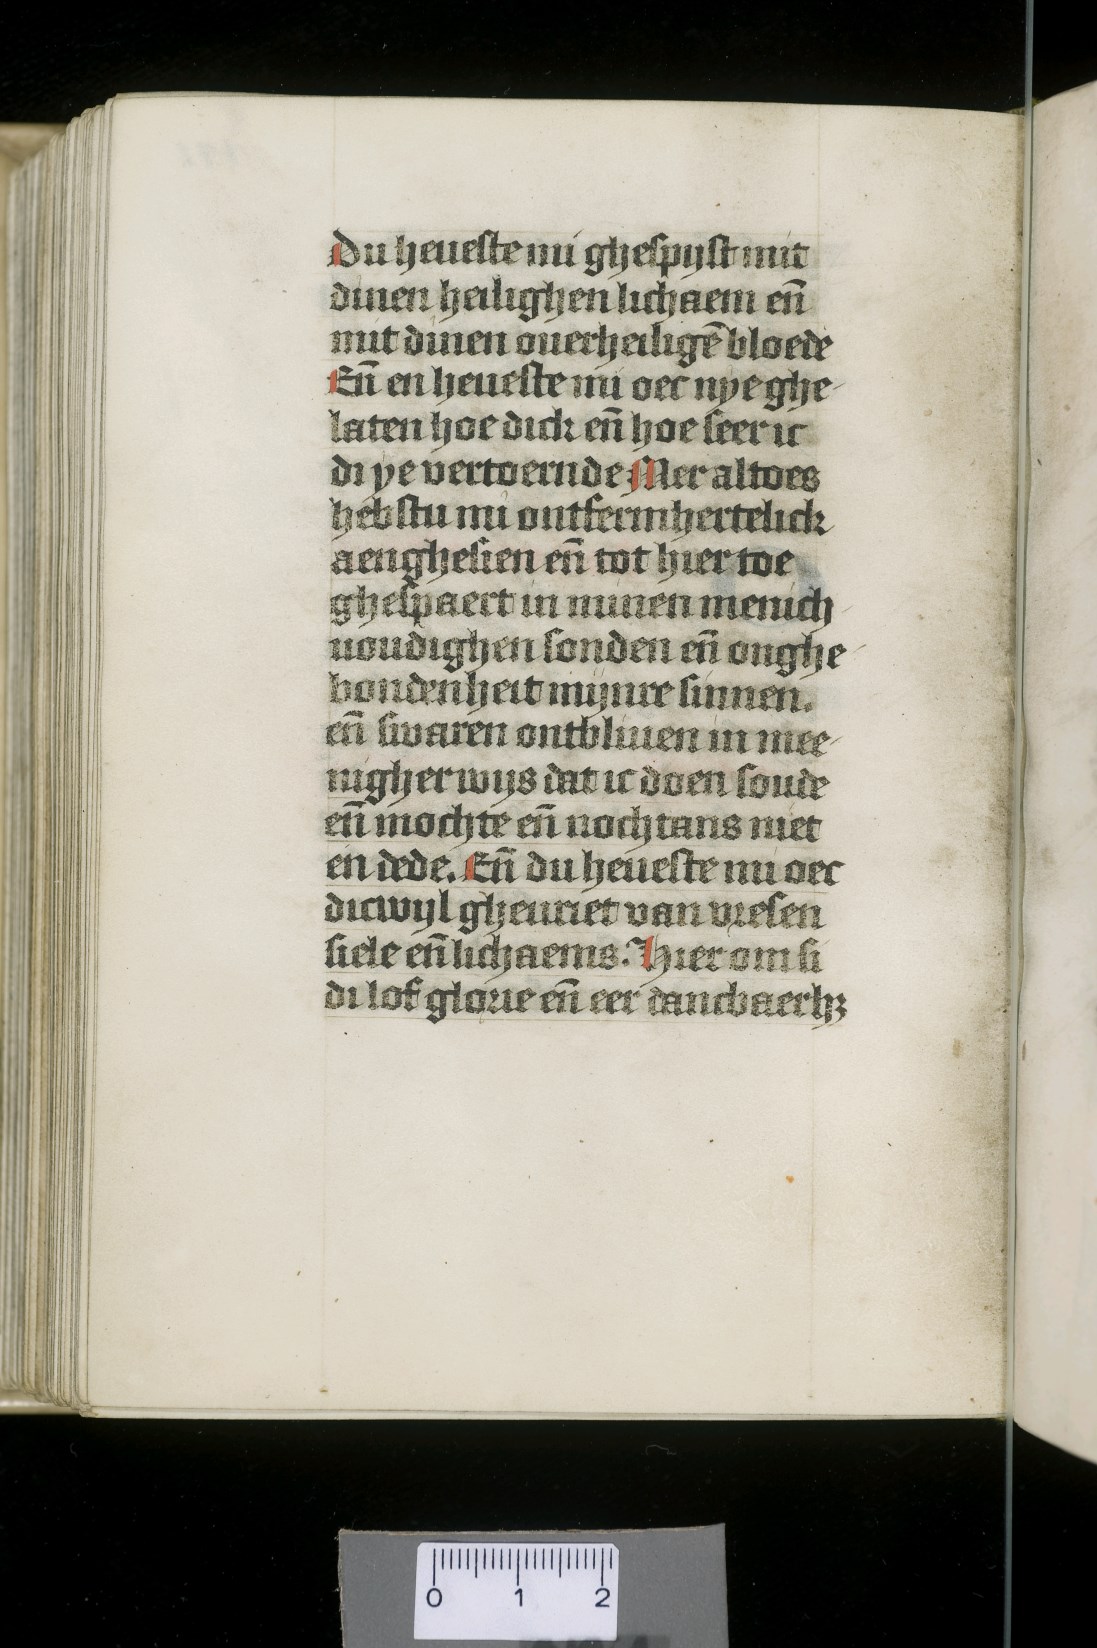 Du heueste mi ghespijst mit
dinen heilighen lichaem en̄
mit dinen ouerheiligē bloede
En̄ en heueste mi oec nye ghe-
laten hoe dick en̄ hoe seer ic
di ye vertoernde Mer altoes
hebstu mi ontfermhertelick
aenghesien en̄ tot hier toe
ghespaert in minen menich-
uoudighen sonden en̄ onghe-
bondenheit mijnre sinnen.
en̄ swaren ontbliuen in mee-
nigher wijs dat ic doen soude
en̄ mochte en̄ nochtans niet
en dede. En̄ du heueste mi oec
dicwijl gheuriet van vresen
siele en̄ lichaems. Hier om si
di lof glorie en̄ eer dancbaerhꝫ
0 1 2